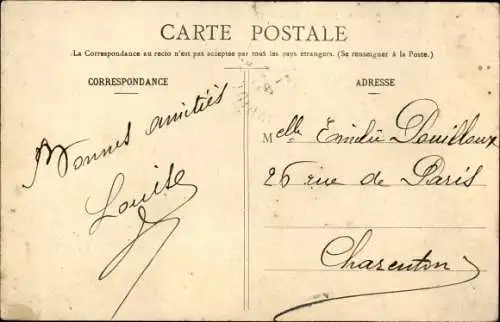 CARTE POSTALE
La Correspondance au recto n'est pas acceptée par tous les pays étrangers. (Se renseigner à la Poste.)
CORRESPONDANCE
Bonnes amitiés
Louise
ADRESSE
Melle Emilie Douilloux
26 rue de Paris
Charenton